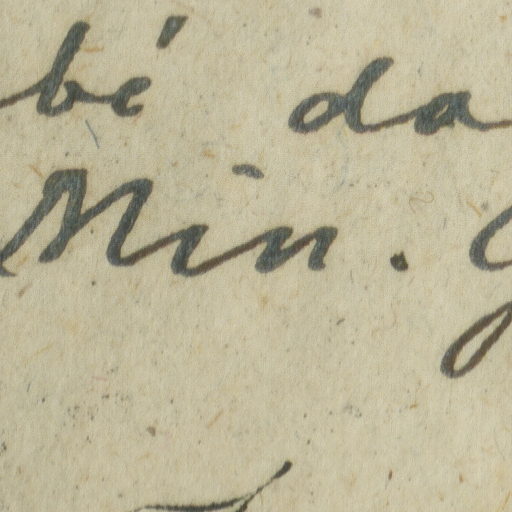 bé da
Min.